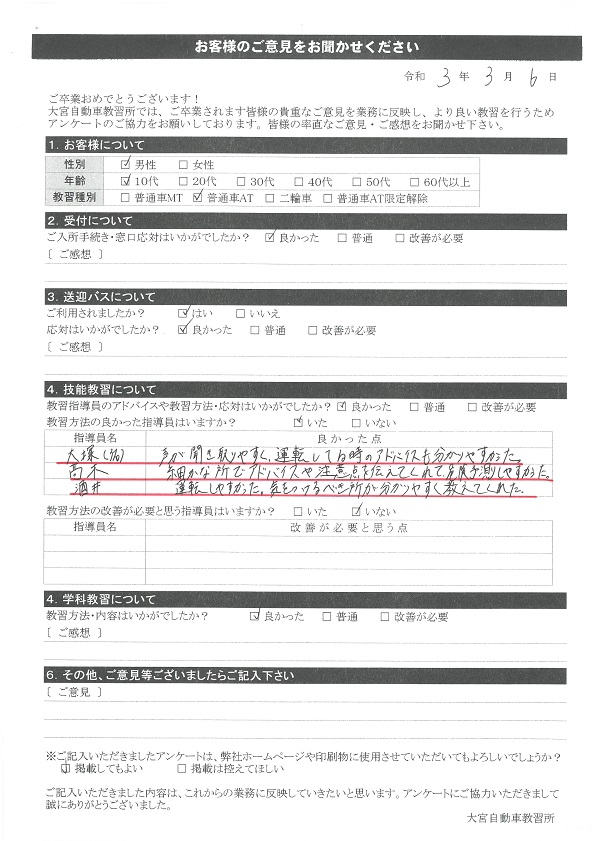 お客様のご意見をお聞かせください
令和 3 年 3 月 6 日
ご卒業おめでとうございます！
大宮自動車教習所では、ご卒業されます皆様の貴重なご意見を業務に反映し、より良い教習を行うため
アンケートのご協力をお願いしております。皆様の率直なご意見・ご感想をお聞かせ下さい。
1. お客様について
性別 ☑男性 □女性
年齢 ☑10代 □20代 □30代 □40代 □50代 □60代以上
教習種別 □普通車MT ☑普通車AT □二輪車 □普通車AT限定解除
2. 受付について
ご入所手続き・窓口応対はいかがでしたか？ ☑良かった □普通 □改善が必要
〔 ご感想 〕
3. 送迎バスについて
ご利用されましたか？ ☑はい □いいえ
応対はいかがでしたか？ ☑良かった □普通 □改善が必要
〔 ご感想 〕
4. 技能教習について
教習指導員のアドバイスや教習方法・応対はいかがでしたか？ ☑良かった □普通 □改善が必要
教習方法の良かった指導員はいますか？ ☑いた □いない
指導員名 良かった点
大塚 声が聞き取りやすく、運転してる時のアドバイスも分かりやすかった。
高木 細かな所でアドバイスや注意点を伝えてくれて、予測しやすかった。
酒井 運転しやすかった。気をつけるべき所が分かりやすく教えてくれた。
教習方法の改善が必要と思う指導員はいますか？ □いた ☑いない
指導員名 改善が必要と思う点
4. 学科教習について
教習方法・内容はいかがでしたか？ ☑良かった □普通 □改善が必要
〔 ご感想 〕
6. その他、ご意見等ございましたらご記入下さい
〔 ご意見 〕
※ご記入いただきましたアンケートは、弊社ホームページや印刷物に使用させていただいてもよろしいでしょうか？
☑掲載してもよい □掲載は控えてほしい
ご記入いただきました内容は、これからの業務に反映していきたいと思います。アンケートにご協力いただきまして
誠にありがとうございました。
大宮自動車教習所